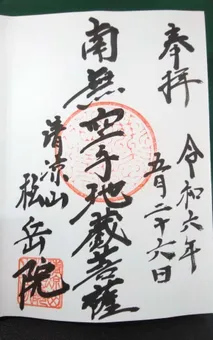 奉拝
令和六年
五月二十六日
南無空手地蔵菩薩
清涼山
松岳院